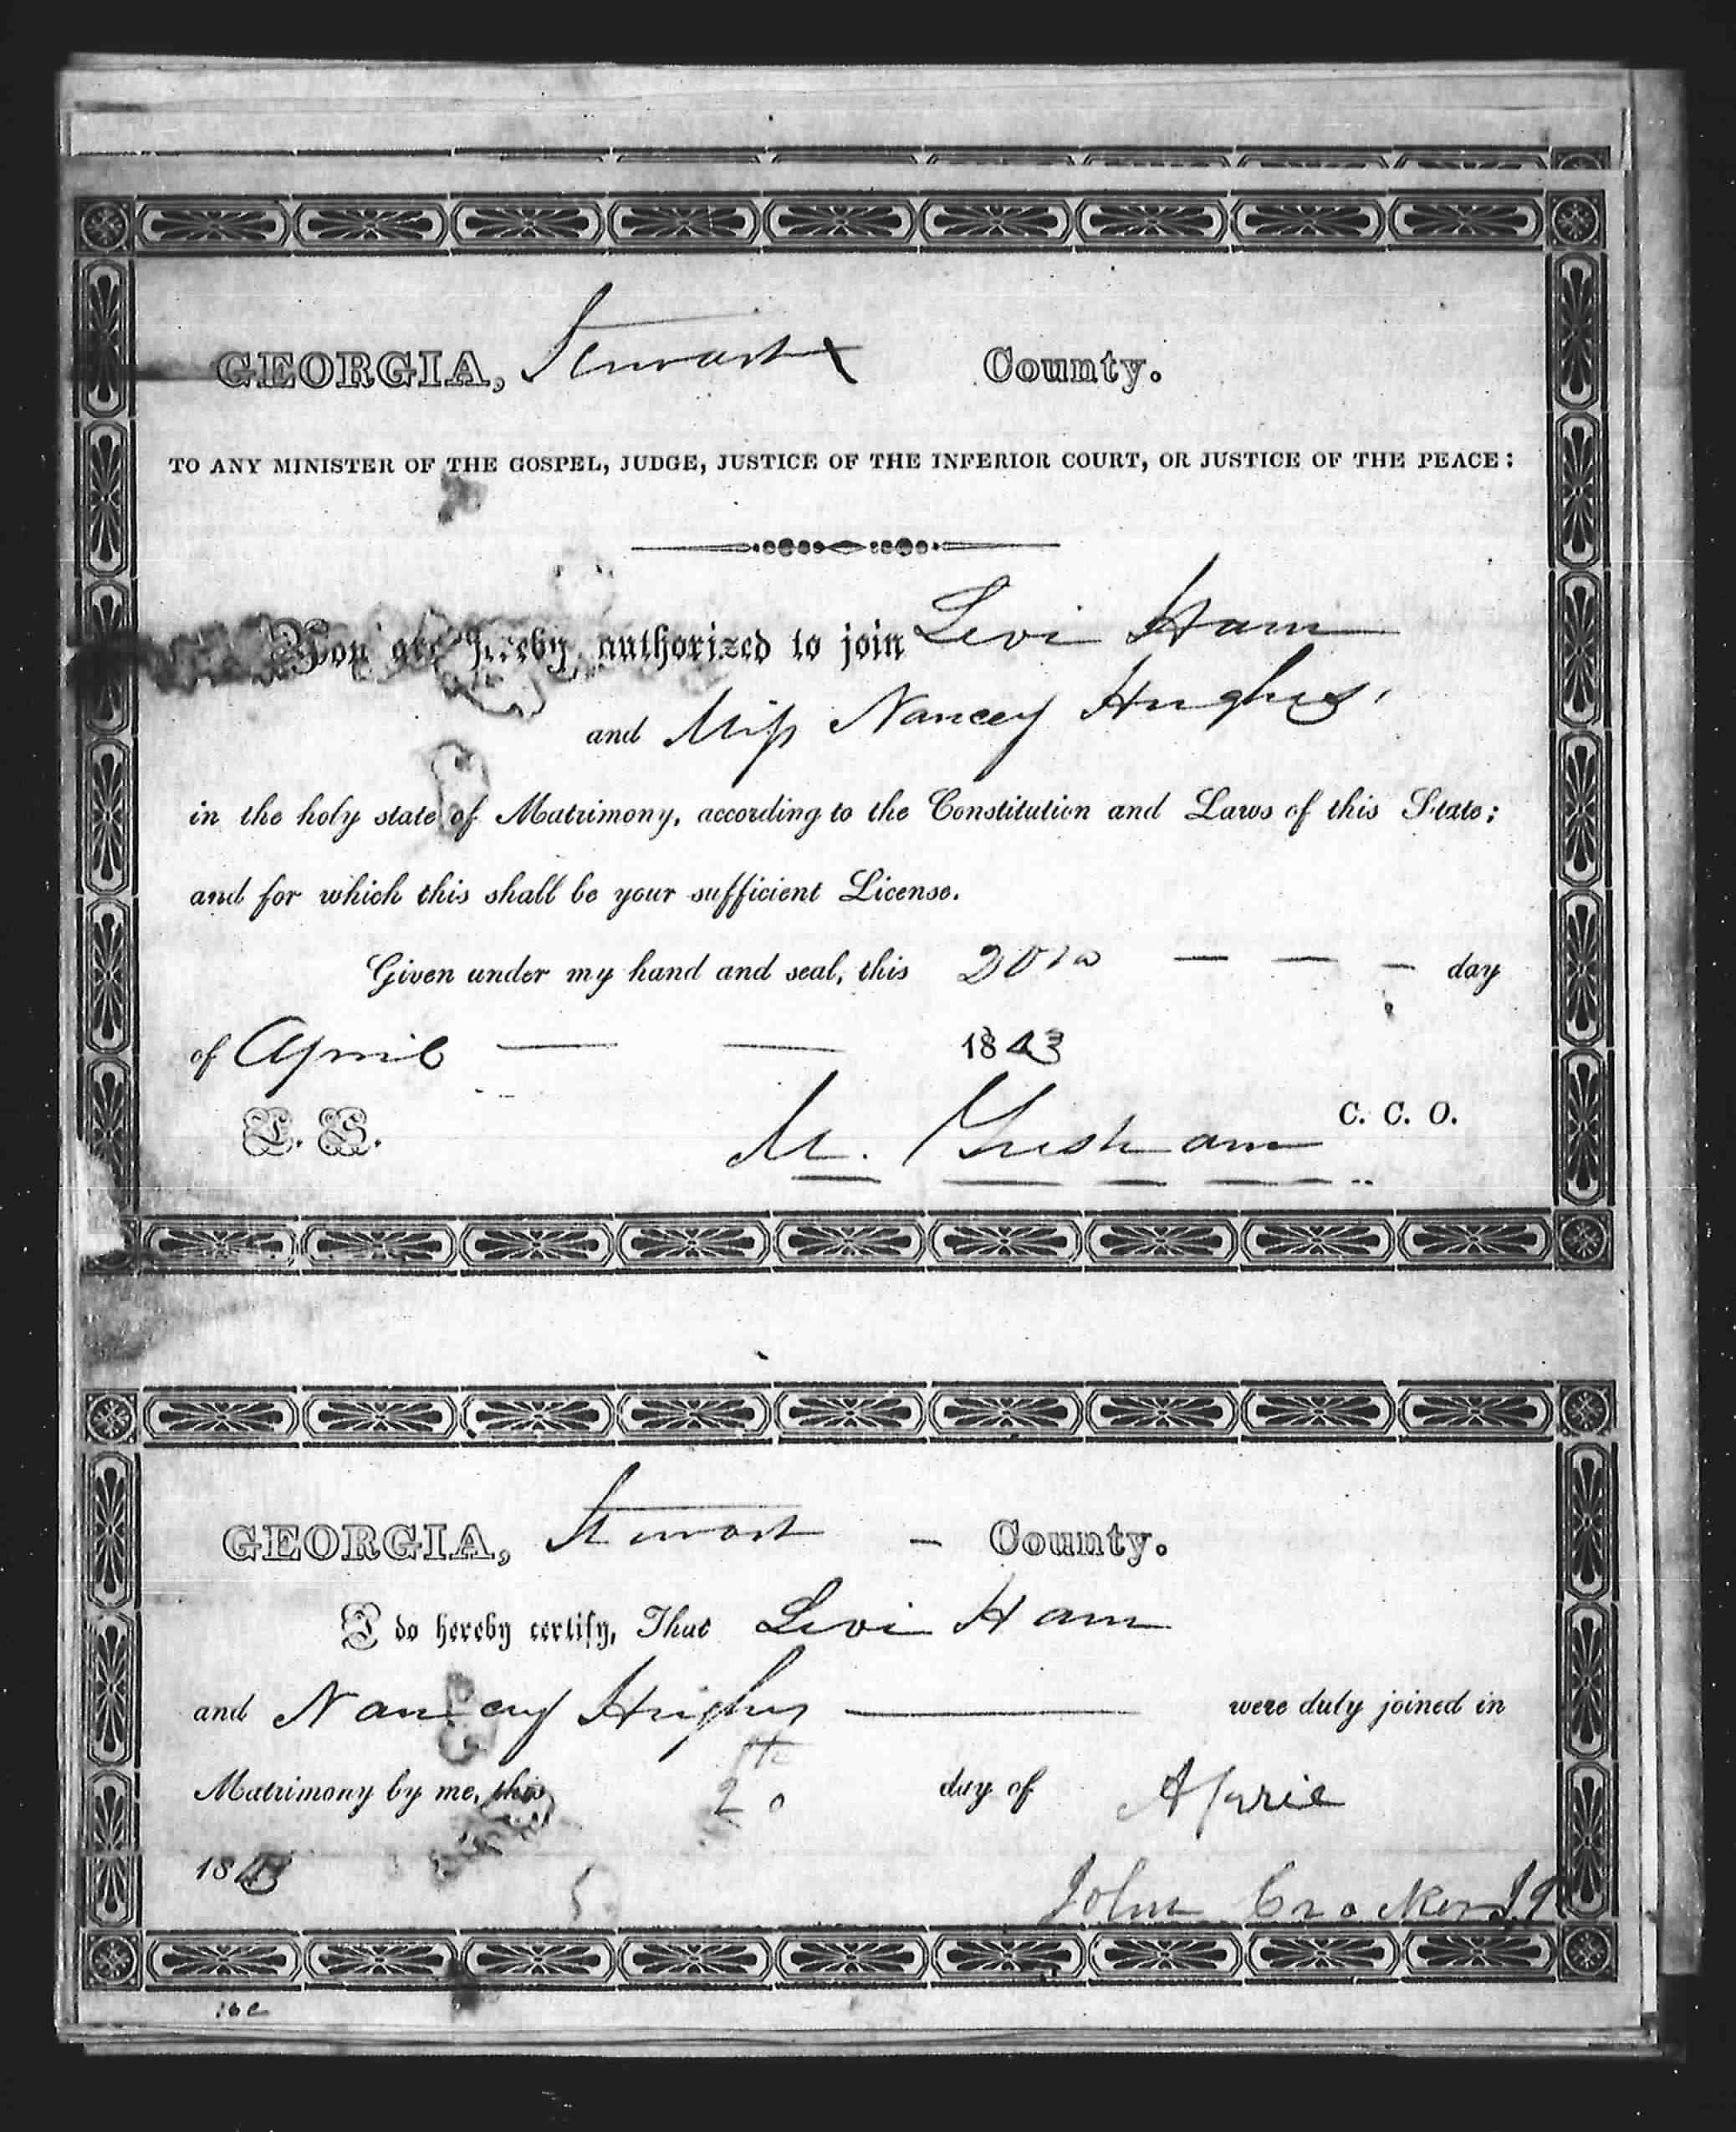 GEORGIA, Stewart County.
TO ANY MINISTER OF THE GOSPEL, JUDGE, JUSTICE OF THE INFERIOR COURT, OR JUSTICE OF THE PEACE:
You are hereby authorized to join Levi Ham
and Miss Nancey Hughes,
in the holy state of Matrimony, according to the Constitution and Laws of this State;
and for which this shall be your sufficient License.
Given under my hand and seal, this 20th — — — day
of April — — 1843
L. S. M. Gresham C. C. O.
GEORGIA, Stewart – County.
I do hereby certify, That Levi Ham
and Nancey Hughes — were duly joined in
Matrimony by me, this 20th day of Aprile
1843
John Crocker J P